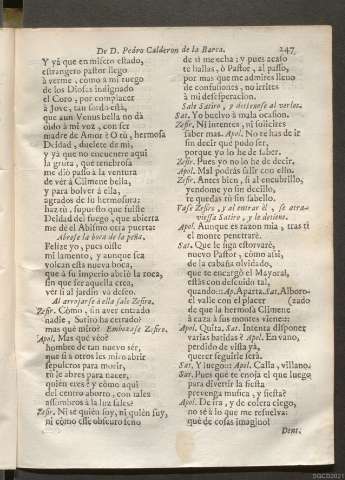 De D. Pedro Calderon de la Barca.
247
Y yà que en mísero estado,
estrangero pastor llego
à verme, como à mi ruego
de los Diosas indignado
el Coro, por complacer
à Jove, tan sorda està,
que aun Venus bella no dà
oido à mi voz, con ser
madre de Amor? O tù, hermosa
Deidad, duelete de mi,
y yà que no encuentre aqui
la gruta, que tenebrosa
me diò passo à la ventura
de vèr à Climene bella,
y para bolver à ella,
agrados de su hermosura;
haz tù, supuesto que fuiste
Deidad del fuego, que abierta
me dè el Abismo otra puerta:
Abrese la boca de la peña.
Felize yo, pues oiste
mi lamento, y aunque sea
volcan esta nueva boca,
que à su imperio abriò la roca,
sin que ser aquella crea,
vèr si al jardin và deseo.
Al arrojarse à ella sale Zefiro.
Zefir. Còmo, sin aver entrado
nadie, Satiro ha cerrado?
mas què miro? Embaraze Zefiro.
Apol. Mas què veo?
hombre de tan nuevo sèr,
que si à otros les miro abrir
sepulcros para morir,
tù le abres para nacer,
quien eres? y còmo aqui
del centro aborto, con tales
assombros à la luz sales?
Zefir. Ni sè quièn soy, ni quièn fuy,
ni còmo esse obscuro seno
de sì me echa; y pues acaso
te hallas, ò Pastor, al passo,
por mas que me admires lleno
de confusiones, no irrites
à mi desesperacion.
Sale Satiro, y detienese al verlos.
Sat. Yo buelvo à mala ocasion.
Zefir. Ni intentes, ni solicites
saber mas. Apol. No te has de ir
sin decir què pudo ser,
porque yo lo he de saber.
Zefir. Pues yo no lo he de decir.
Apol. Mal podràs salir con ello.
Zefir. Antes bien, si al encubrillo,
yendome yo sin decillo,
te quedas tù sin sabello.
Vase Zefiro, y al entrar èl, se atraviessa
Satiro, y le detiene.
Apol. Aunque es razon mia, tras tì
el monte penetrarè.
Sat. Que le siga estorvarè,
nuevo Pastor, còmo assi,
de la cabaña olvidado,
que te encargò el Mayoral,
estàs con descuido tal,
quando:- Ap. Aparta. Sat. Alborozado
el valle con el placer
de que la hermosa Climene
à caza à sus montes viene:-
Apol. Quita. Sat. Intenta disponer
varias batidas? Apol. En vano,
perdido de vista yà,
querer seguirle serà.
Sat. Y luego:- Apol. Calla, villano.
Sat. Pues què te enoja el que luego
para divertir la fiesta
prevenga musica, y fiesta?
Apol. De ira, y de colera ciego,
no sè à lo que me resuelva:
què de cosas imagino!
Dent.
SGCB2021